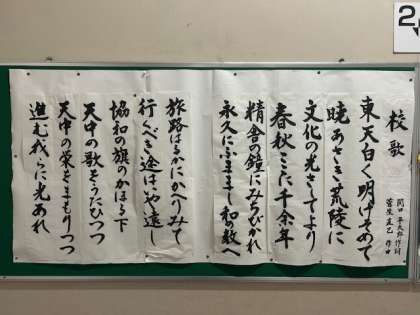 校歌
作詞
作曲
東天白く明けそめて
暁あさき荒陵に
文化の光さしてより
春秋ここに千余年
精舎の鐘にみちびかれ
永久にふままし和の教へ
旅路はるかにかへりみて
行くべき途はいや遠し
協和の旗のかほる下
天中の歌をうたひつつ
天中の栄をまもりつつ
進む我らに光あれ
2